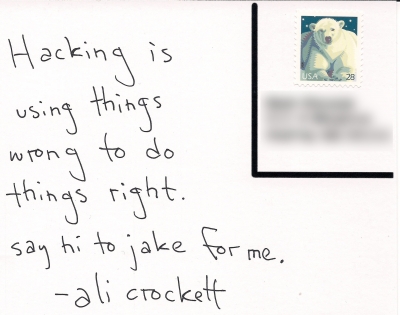 Hacking is
using things
wrong to do
things right.
say hi to jake for me.
- ali crockett
USA 28